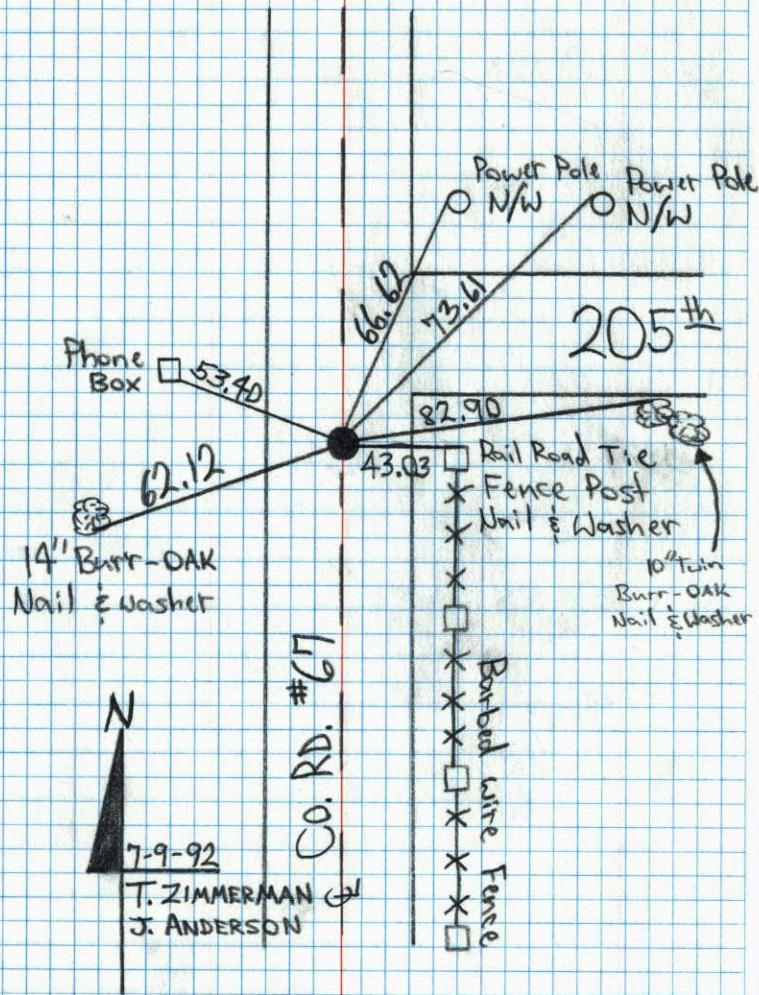 Power Pole
N/W
Power Pole
N/W
66.62
73.61
205th
Phone
Box
53.40
82.90
43.03
Rail Road Tie
Fence Post
Nail & Washer
62.12
14" Burr-OAK
Nail & Washer
10" Twin
Burr-OAK
Nail & Washer
CO. RD. #67
Barbed Wire Fence
N
7-9-92
T. ZIMMERMAN
J. ANDERSON